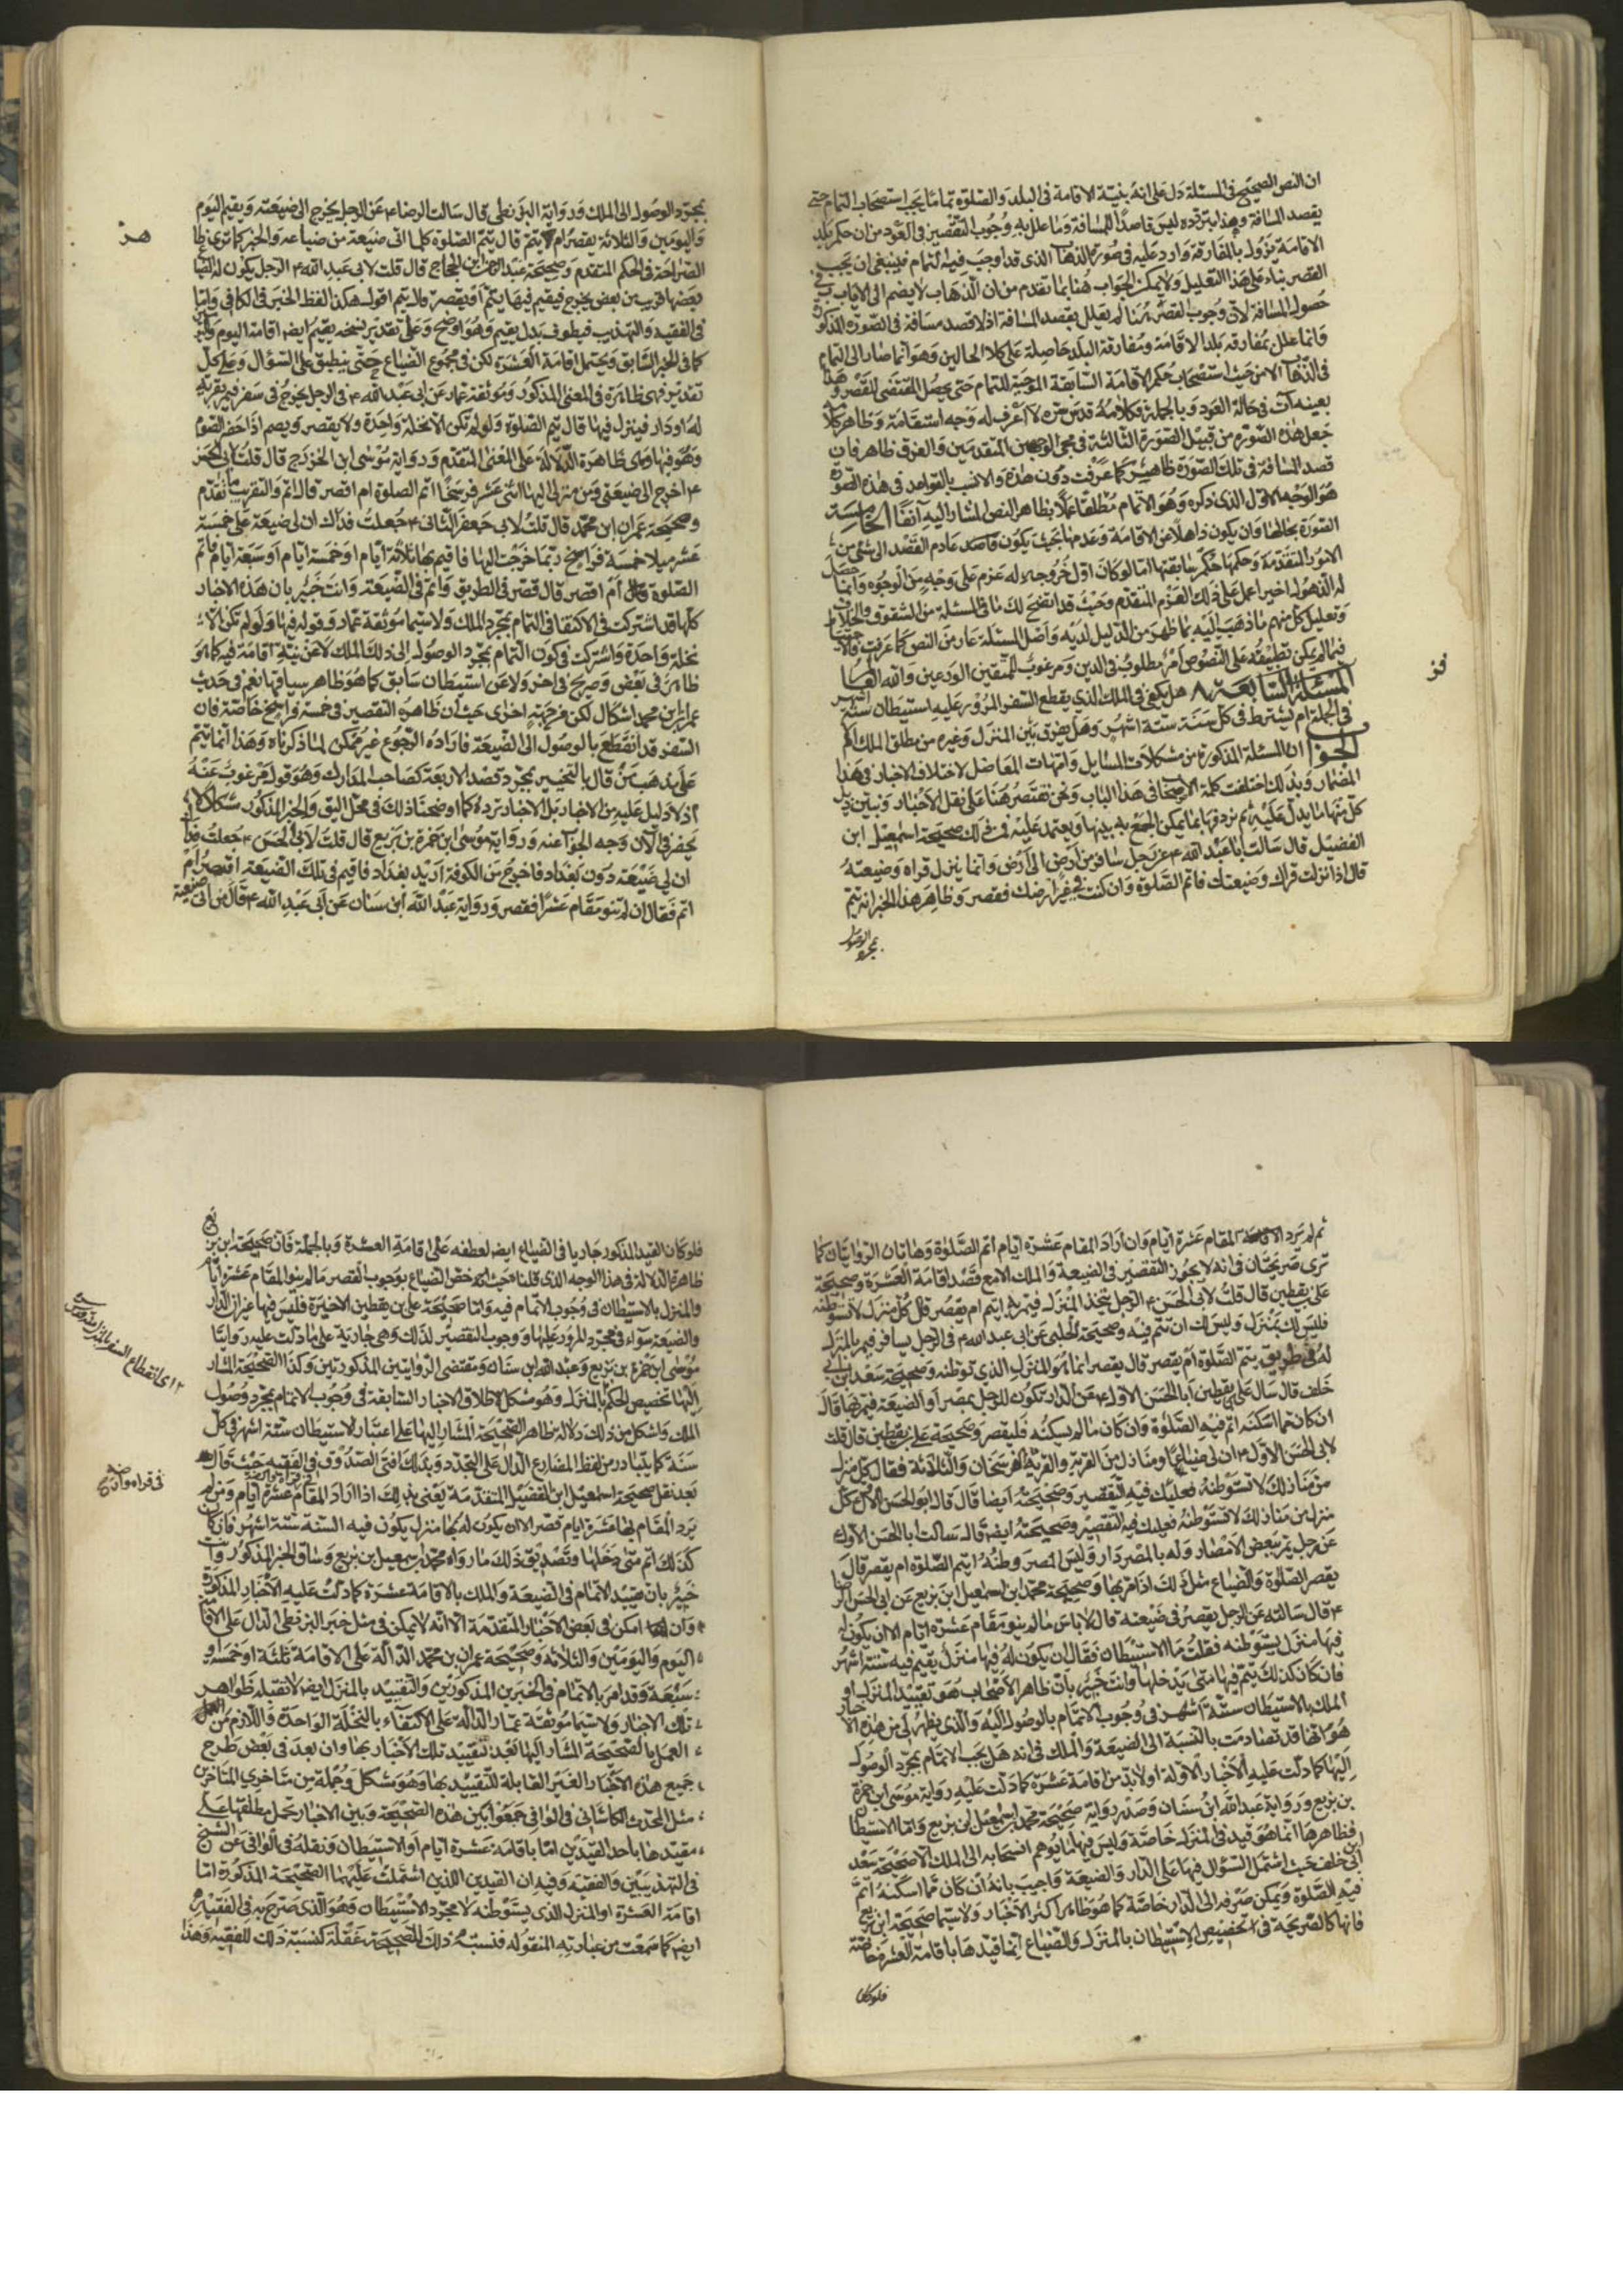 ان النص الصحيح في المسئلة دل على انه بنية الاقامة في البلد والصلوة تماما يجب استصحاب التمام حتى
يقصد المسافة وهذا بتردده ليس قاصدا للمسافة وما علل به وجوب التقصير في العود من ان حكم بلد
الاقامة يزول بالمفارقة وارد عليه في صورة الذهاب الذي قد اوجب فيه التمام فينبغي ان يجب
القصر بناء على هذا التعليل ولا يمكن الجواب هنا بما تقدم من ان الذهاب لا يضم الى الاياب في
حصول المسافة لان وجوب القصر هنا لم يعلل بقصد المسافة اذ لا قصد مسافة في الصورة المذكورة
وانما علل بمفارقة بلد الاقامة ومفارقة البلد حاصلة على كلا الحالين وهو انما صار الى التمام
في الذهاب الا من حيث استصحاب حكم الاقامة السابقة الموجبة للتمام حتى يحصل المقتضى للقصر وهذا
بعينه آت في حالة العود وبالجملة فكلامه قدس سره لا اعرف له وجه استقامة وظاهر كلا
جعل هذه الصورة من قبيل الصورة الثالثة في مجئ الوجهين المتقدمين والفرق ظاهر فان
قصد المسافة في تلك الصورة ظاهر كما عرفت دون هذه والانسب بالقواعد في هذه الصورة
هو الوجه الاول الذي ذكره وهو الاتمام مطلقا عملا بظاهر النص المشار اليه آنفا الخامسة
الصورة بحالها وان يكون ذاهلا عن الاقامة وعدمها بحيث يكون عادم القصد الى شئ من
الامور المتقدمة وحكمها حكم سابقتها اما لو كان اول خروجه له عزم على وجه من الوجوه وانما حصل
له الذهول اخيرا عمل على ذلك العزم المتقدم وحيث قد اتضح لك ما في المسئلة من الشقوق والخلاف
وتعليل كل منهم ما ذهب اليه بما ظهر من الدليل لديه واصل المسئلة عار من النص كما عرفت فالاحتياط
فيما لم يمكن تطبيقه على النصوص امر مطلوب في الدين ومرغوب للمتقين الورعين والله العالم
المسئلة السابعة ٨ هل يكفي في الملك الذي يقطع السفر المرور عليه استيطان ستة اشهر
في الجملة ام يشترط في كل سنة ستة اشهر وهل يفرق بين المنزل وغيره من مطلق الملك ام لا
الجواب ان المسئلة المذكورة من مشكلات المسايل وامهات المعاضل لاختلاف الاخبار في هذا
المضمار وبذلك اختلفت كلمة الاصحاب في هذا الباب ونحن نقتصر هنا على نقل الاخبار ونبين ذيل
كل منها ما يدل عليه ثم نردفها بما يمكن الجمع به بينها ويعتمد عليه فمن ذلك صحيحة اسمعيل ابن
الفضيل قال سالت ابا عبد الله ع عن رجل سافر من ارض الى ارض وانما ينزل قراه وضيعته
قال اذا نزلت قراك وضيعتك فاتم الصلوة وان كنت في غير ارضك فقصر وظاهر هذا الخبر انه يتم
بمجرد الوصول
فز
بمجرد الوصول الى الملك ورواية البزنطي قال سالت الرضا ع عن الرجل يخرج الى ضيعته ويقيم اليوم
واليومين والثلاثة يقصر ام يتم قال يتم الصلوة كلما اتى ضيعة من ضياعه والخبر كما ترى ظا
الصراحة في الحكم المتقدم وصحيحة عبد الرحمن ابن الحجاج قال قلت لابي عبد الله ع الرجل يكون له الضياع
بعضها قريب من بعض يخرج فيقيم فيها يتم او يقصر قال يتم اقول هكذا لفظ الخبر في الكافي واما
في الفقيه والتهذيب فيطوف بدل يقيم وهو اوضح وعلى تقدير نسخه يقيم ايضا اقامة اليوم واليومين
كما في الخبر السابق ويحتمل اقامة العشرة لكن في مجموع الضياع حتى ينطبق على السؤال وعلى كل
تقدير فهي ظاهرة في المعنى المذكور وموثقة عمار عن ابي عبد الله ع في الرجل يخرج في سفر فيمر بقرية
له او دار فينزل فيها قال يتم الصلوة ولو لم تكن الا نخلة واحدة ولا يقصر ويصم اذا حضر الصوم
وهو فيها وهي ظاهرة الدلالة على المعنى المتقدم ورواية موسى ابن الخزرج قال قلت لابي الحسن
ع اخرج الى ضيعتي ومن منزلي اليها اثنى عشر فرسخا اتم الصلوة ام اقصر قال اتم والتقريب ما تقدم
وصحيحة عمران ابن محمد قال قلت لابي جعفر الثاني ع جعلت فداك ان لي ضيعة على خمسة
عشر ميلا خمسة فراسخ ربما خرجت اليها فاقيم بها ثلاثة ايام او خمسة ايام او سبعة ايام فاتم
الصلوة ام اقصر قال قصر في الطريق واتم في الضيعة وانت خبير بان هذه الاخبار
كلها قد اشتركت في الاكتفا في التمام بمجرد الملك ولا سيما موثقة عمار وقوله فيها ولو لم تكن الا
نخلة واحدة واشتركت في كون التمام بمجرد الوصول الى ذلك الملك لا عن نية اقامة فيه كما هو
ظاهر في بعض وصريح في اخر ولا عن استيطان سابق كما هو ظاهر سياقها نعم في حديث
عمران بن محمد اشكال لكن من جهة اخرى حيث ان ظاهره التقصير في خمسة فراسخ خاصة فان
السفر قد انقطع بالوصول الى الضيعة فارادة الرجوع غير ممكن لما ذكرناه وهذا انما يتم
على مذهب من قال بالتخيير بمجرد قصد الاربعة كصاحب المدارك وهو قول مرغوب عنه
اذ لا دليل عليه من الاخبار بل الاخبار ترده كما اوضحنا ذلك في محل اليق والخبر المذكور مشكل لا
يحضرني الان وجه الجواب عنه ورواية موسى ابن حمزة بن بزيع قال قلت لابي الحسن ع جعلت فداك
ان لي ضيعة دون بغداد فاخرج من الكوفة اريد بغداد فاقيم في تلك الضيعة اقصر ام
اتم فقال ان لم تنو مقام عشرا فقصر ورواية عبد الله ابن سنان عن ابي عبد الله ع قال من اتى ضيعته
ثم لم يرد المقام عشرة ايام وان اراد المقام عشرة ايام اتم الصلوة وهاتان الروايتان كما
ترى صريحتان في انه لا يجوز التقصير في الضيعة والملك الا مع قصد اقامة العشرة وصحيحة
على بن يقطين قال قلت لابي الحسن ع الرجل يتخذ المنزل فيمر به ايتم ام يقصر قال كل منزل لا تستوطنه
فليس لك بمنزل وليس لك ان تتم فيه وصحيحة الحلبي عن ابي عبد الله ع في الرجل يسافر فيمر بالمنزل
له في طريق يتم الصلوة ام يقصر قال يقصر انما هو المنزل الذي توطنه وصحيحة سعد بن ابي
خلف قال سال على بن يقطين ابا الحسن الاول ع عن الدار تكون للرجل بمصر او الضيعة فيمر بها قال
ان كان مما اسكنه اتم فيه الصلوة وان كان مما لم يسكنه فليقصر وصحيحة على بن يقطين قال قلت
لابي الحسن الاول ع ان لي ضياعا ومنازل بين القرية والقرية الفرسخان والثلاثة فقال كل منزل
من منازلك لا تستوطنه فعليك فيه التقصير وصحيحته ايضا قال قال ابو الحسن الاول ع كل
منزل من منازلك لا تستوطنه فعليك فيه التقصير وصحيحته ايضا قال سالت ابا الحسن الاول
عن رجل يمر ببعض الامصار وله بالمصر دار وليس المصر وطنه ايتم الصلوة ام يقصر قال
يقصر الصلوة والضياع مثل ذلك اذا مر بها وصحيحة محمد ابن اسمعيل ابن بزيع عن ابي الحسن الرضا
ع قال سالته عن الرجل يقصر في ضيعته قال لا باس ما لم ينو مقام عشرة ايام الا ان يكون له
فيها منزل يستوطنه فقلت ما الاستيطان فقال ان يكون له فيها منزل يقيم فيه ستة اشهر
فان كان كذلك يتم فيها متى يدخلها وانت خبير بان ظاهر الاصحاب هو تقييد المنزل او
الملك بالاستيطان ستة اشهر في وجوب الاتمام بالوصول اليه والذي يظهر لي من هذه الاخبار
هو انها قد تصادمت بالنسبة الى الضيعة والملك في انه هل يجب الاتمام بمجرد الوصول
اليها كما دلت عليه الاخبار الاولة او لا بد من اقامة عشرة كما دلت عليه رواية موسى ابن حمزة
بن بزيع ورواية عبد الله ابن سنان وصدر رواية صحيحة محمد بن اسمعيل بن بزيع واما الاستيطان
فظاهرها انما هو قيد في المنزل خاصة وليس فيها ما يوهم انسحابه الى الملك الا صحيحة سعد ابن
ابي خلف حيث اشتمل السؤال فيها على الدار والضيعة واجيب بانه ان كان مما اسكنه اتم
فيه الصلوة ويمكن صرفه الى الدار خاصة كما هو ظاهر اكثر الاخبار ولا سيما صحيحة ابن بزيع
فانها كالصريحة في تخصيص الاستيطان بالمنزل والضياع انما قيدها باقامة العشر خاصة
فلو كان
فلو كان القيد المذكور جاريا في الضياع ايضا لعطفه على اقامة العشرة وبالجملة فان صحيحة ابن بزيع
ظاهرة الدلالة في هذا الوجه الذي قلناه حيث انه خص الضياع بوجوب القصر ما لم ينو المقام عشرة ايام
والمنزل بالاستيطان في وجوب الاتمام فيه واما صحيحة على بن يقطين الاخيرة فليس فيها غير ان الدار
والضيعة سواء في مجرد المرور عليها ووجوب التقصير لذلك وهي جارية على ما دلت عليه روايتا
موسى ابن حمزة بن بزيع وعبد الله ابن سنان ومقتضى الروايتين المذكورتين وكذا الصحيحة المشار
اليها تخصيص الحكم بالمنزل وهو مشكل لاطلاق الاخبار السابقة في وجوب الاتمام بمجرد وصول
الملك واشكل من ذلك دلالة ظاهر الصحيحة المشار اليها على اعتبار الاستيطان ستة اشهر في كل
سنة كما يتبادر من لفظ المضارع الدال على التجدد وبذلك افتى الصدوق في الفقيه حيث قال
بعد نقل صحيحة اسمعيل ابن الفضيل المتقدمة يعني بذلك اذا اراد المقام عشرة ايام ومن لم
يرد المقام بها عشرة ايام قصر الا ان يكون له بها منزل يكون فيه السنة ستة اشهر فان كان
كذلك اتم متى دخلها وتصديق ذلك ما رواه محمد بن اسمعيل بن بزيع وساق الخبر المذكور وانت
خبير بان تقييد الاتمام في الضيعة والملك بالاقامة عشرة كما دلت عليه الاخبار المذكورة
وان امكن في بعض الاخبار المتقدمة الا انه لا يمكن في مثل خبر البزنطي الدال على الاقامة
اليوم واليومين والثلاثة وصحيحة عمران بن محمد الدالة على الاقامة ثلثة او خمسة او
سبعة وقد امر بالاتمام في الخبرين المذكورين والتقييد بالمنزل ايضا لا تقبله ظواهر
تلك الاخبار ولا سيما موثقة عمار الدالة على الاكتفاء بالنخلة الواحدة فاللازم من العمل
العمل بالصحيحة المشار اليها بعد تقييد تلك الاخبار بها وان بعد في بعض طرح
جميع هذه الاخبار الغير القابلة للتقييد بها وهو مشكل وجملة من متاخري المتاخرين
مثل المحدث الكاشاني في الوافي جمعوا بين هذه الصحيحة وبين الاخبار بحمل مطلقها على
مقيدها باحد القيدين اما باقامة عشرة ايام او الاستيطان ونقله في الوافي عن الشيخ
في التهذيبين والفقيه وفيه ان القيدين اللذين اشتملت عليهما الصحيحة المذكورة اما
اقامة العشرة او المنزل الذي يستوطنه لا مجرد الاستيطان وهو الذي صرح به في الفقيه
ايضا كما سمعت من عبارته المنقولة فنسبة ذلك للصحيحة غفلة كنسبة ذلك للفقيه وهذا
في قراه وارضه